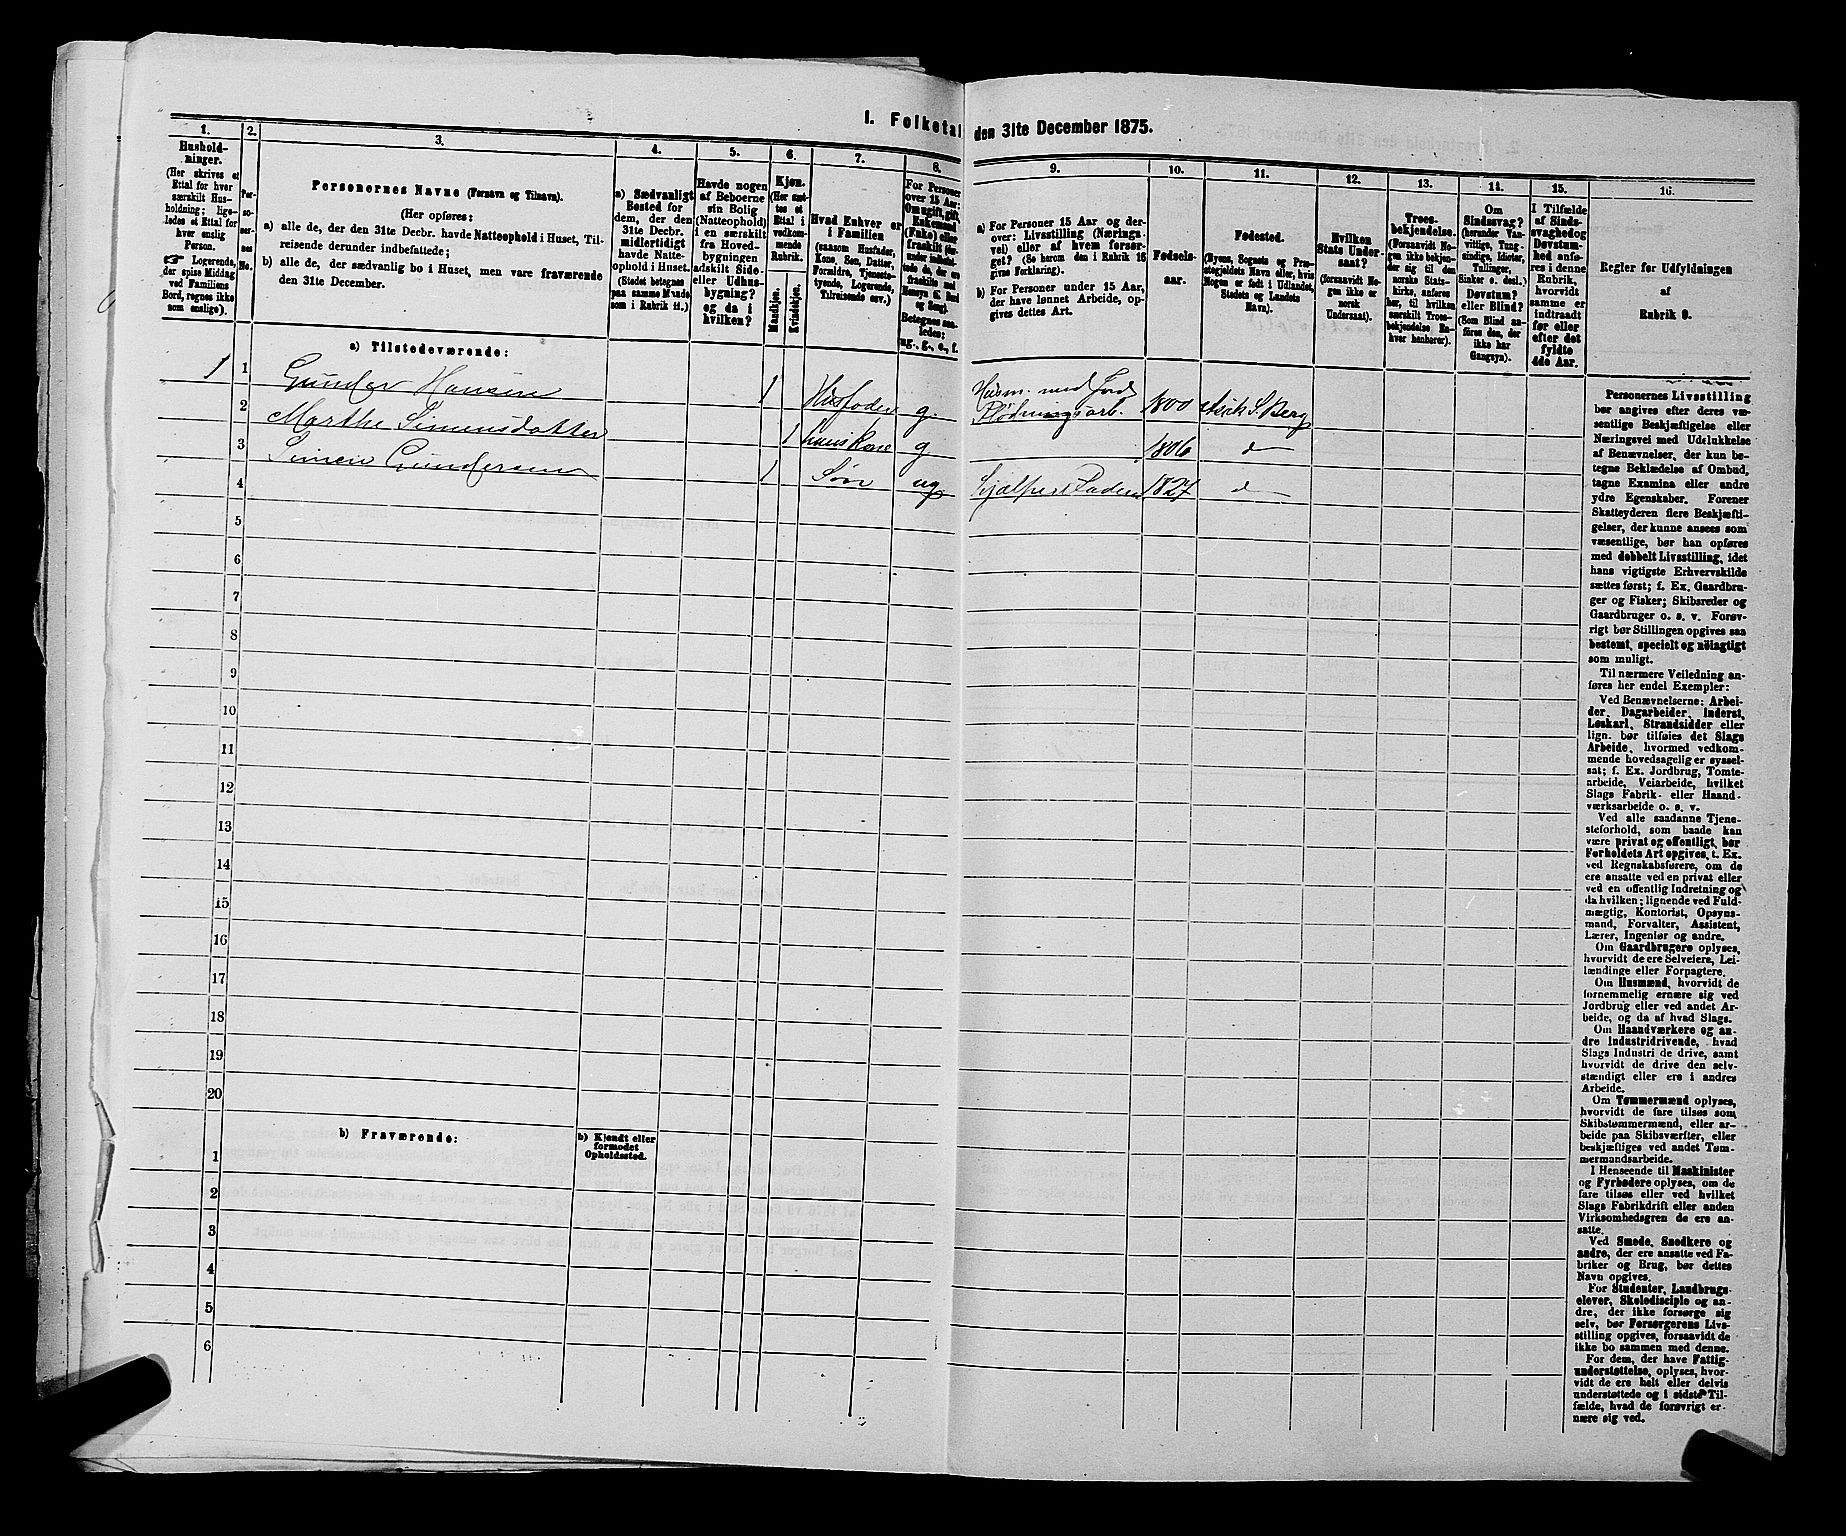 I. Folketal
den 31te December 1875.
1.
Hushold-
ninger.
(Her skrives et
Ettal for hver
særskilt Hus-
holdning; lige-
ledes et Ettal for
hver enslig
Person.
☛ Logerende,
der spise Middag
ved Familiens
Bord, regnes ikke
som enslige).
2.
Per-
so-
ner-
nes
No.
3.
Personernes Navne (Fornavn og Tilnavn).
(Her opføres:
a) alle de, der den 31te Decbr. havde Natteophold i Huset, Til-
reisende derunder indbefattede;
b) alle de, der sædvanlig bo i Huset, men vare fraværende
den 31te December.
4.
a) Sædvanligt
Bosted for
dem, der den
31te Decbr.
midlertidigt
havde Natte-
ophold i Huset.
(Stedet betegnes
paa samme Maade
som i Rubrik 11.)
5.
Havde nogen
af Beboerne
sin Bolig
(Natteophold)
i en særskilt
fra Hoved-
bygningen
adskilt Side-
eller Udhus-
bygning?
og da i
hvilken?
6.
Kjøn.
(Her sæt-
tes et
Ettal i
vedkom-
mende
Rubrik.
Mandkjøn.
Kvindekjøn.
7.
Hvad Enhver er
i Familien
(saasom Husfader,
Kone, Søn, Datter,
Forældre, Tjeneste-
tyende, Logerende,
Tilreisende osv.)
8.
For Personer
over 15 Aar:
Om ugift, gift,
Enkemand
(Enke) eller
fraskilt
Betegnes saa-
ledes:
ug., g., e., f.
9.
a) For Personer 15 Aar og der-
over: Livsstilling (Nærings-
vei) eller af hvem forsør-
get? (Se herom den i Rubrik 16
givne Forklaring).
b) For Personer under 15 Aar,
der have lønnet Arbeide, op-
gives dettes Art.
10.
Fødsels-
aar.
11.
Fødested.
(Byens, Sognets og Præ-
stegjeldets Navn eller, hvis
Nogen er født i Udlandet,
Stedets og Landets
Navn).
12.
Hvilken
Stats Under-
saat?
(forsaavidt No-
gen ikke er
norsk
Undersaat).
13.
Troes-
bekjendelse.
(Forsaavidt No-
gen ikke bekjen-
der sig til den
norske Stats-
kirke, anføres
her, til hvilken
særskilt Troes-
bekjendelse En-
hver henhører).
14.
Om
Sindssvag?
(herunder Van-
vittige, Tung-
sindige, Idioter,
Tullinger,
Sinker o. desl.)
Døvstum?
eller Blind?
(Som Blind an-
føres den, der
ikke har
Gangsyn).
15.
I Tilfælde
af Sinds-
svaghed og
Døvstum-
hed anfø-
res i denne
Rubrik,
hvorvidt
samme er
indtraadt
før eller
efter det
fyldte
4de Aar.
16.
Regler for Udfyldningen
af
Rubrik 9.
a) Tilstedeværende:
1 1 Gunder Hansen 1 Husfader g. Husm. med Jord 1800 S. Berg
2 Marthe Simensdatter 1 hans Kone g 1806 d
3 Simen Gundersen 1 Søn ug hjælper Faderen 1827 d
4
5
6
7
8
9
10
11
12
13
14
15
16
17
18
19
20
b) Fraværende:
b) Kjendt eller
formodet
Opholdssted.
1
2
3
4
5
6
Personernes Livsstilling
bør angives efter deres væ-
sentlige Beskjæftigelse eller
Næringsvei med Udelukkelse
af Benævnelser, der kun be-
tegne Beklædelse af Ombud,
tagne Examina eller andre
ydre Egenskaber. Forener
Skatteyderen flere Beskjæfti-
gelser, der kunne ansees som
væsentlige, bør han opføres
med dobbelt Livsstilling, idet
hans vigtigste Erhvervskilde
sættes først; f. Ex. Gaardbru-
ger og Fisker; Skibsreder og
Gaardbruger o. s. v. Forøv-
rigt bør Stillingen opgives saa
bestemt, specielt og nøiagtigt
som muligt.
Til nærmere Veiledning an-
føres her endel Exempler:
Ved Benævnelserne: Arbei-
der, Dagarbeider, Inderst,
Løskarl, Strandsidder eller
lign. bør tilføies det Slags
Arbeide, hvormed vedkom-
mende hovedsagelig er syssel-
sat; f. Ex. Jordbrug, Tomte-
arbeide, Veiarbeide, hvilket
Slags Fabrik- eller Haand-
værksarbeide o. s. v.
Ved alle saadanne Tjene-
steforhold, som baade kan
være privat og offentligt, bør
Forholdets Art opgives, t. Ex.
ved Regnskabsførere, om de
ere ansatte ved en privat eller
ved en offentlig Indretning og
da hvilken; lignende ved Fuld-
mægtig, Kontorist, Opsyns-
mand, Forvalter, Assistent,
Lærer, Ingeniør og andre.
Om Gaardbrugere oplyses,
hvorvidt de ere Selveiere, Lei-
lændinge eller Forpagtere.
Om Husmænd, hvorvidt de
fornemmelig ernære sig ved
Jordbrug eller ved andet Ar-
beide, og da af hvad Slags.
Om Haandværkere og an-
dre Industridrivende, hvad
Slags Industri de drive, samt
hvorvidt de drive den selv-
stændigt eller ere i andres
Arbeide.
Om Tømmermænd oplyses,
hvorvidt de fare tilsøs som
Skibstømmermænd, eller ar-
beide paa Skibsværfter, eller
beskjæftiges ved andet Tøm-
mermandsarbeide.
I Henseende til Maskinister
og Fyrbødere oplyses, om de
fare tilsøs eller ved hvilket
Slags Fabrikdrift eller anden
Virksomhedsgren de ere an-
satte.
Ved Smede, Snedkere og
andre, der ere ansatte ved Fa-
briker og Brug, bør dettes
Navn opgives.
For Studenter, Landbrugs-
elever, Skoledisciple og an-
dre, der ikke forsørge sig
selv, bør Forsørgerens Livs-
stilling opgives, forsaavidt de
ikke bo sammen med denne.
For dem, der have Fattig-
understøttelse, oplyses, hvor-
vidt de ere helt eller delvis
understøttede og i sidste Til-
fælde, hvad de forøvrigt er-
nære sig ved.